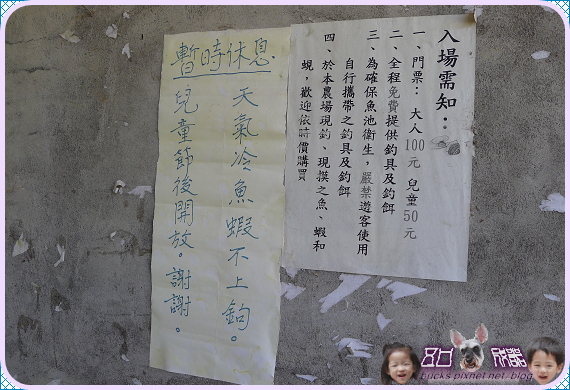 入場需知：
一、門票：大人100元 兒童50元
二、全程免費提供釣具及釣餌
三、為確保魚池衛生，嚴禁遊客使用
自行攜帶之釣具及釣餌
四、於本農場現釣、現摸之魚、蝦和
蜆，歡迎依時價購買
暫時休息
天氣冷魚蝦不上鉤。
兒童節後開放。謝謝。
Bucks.pixnet.net/blog